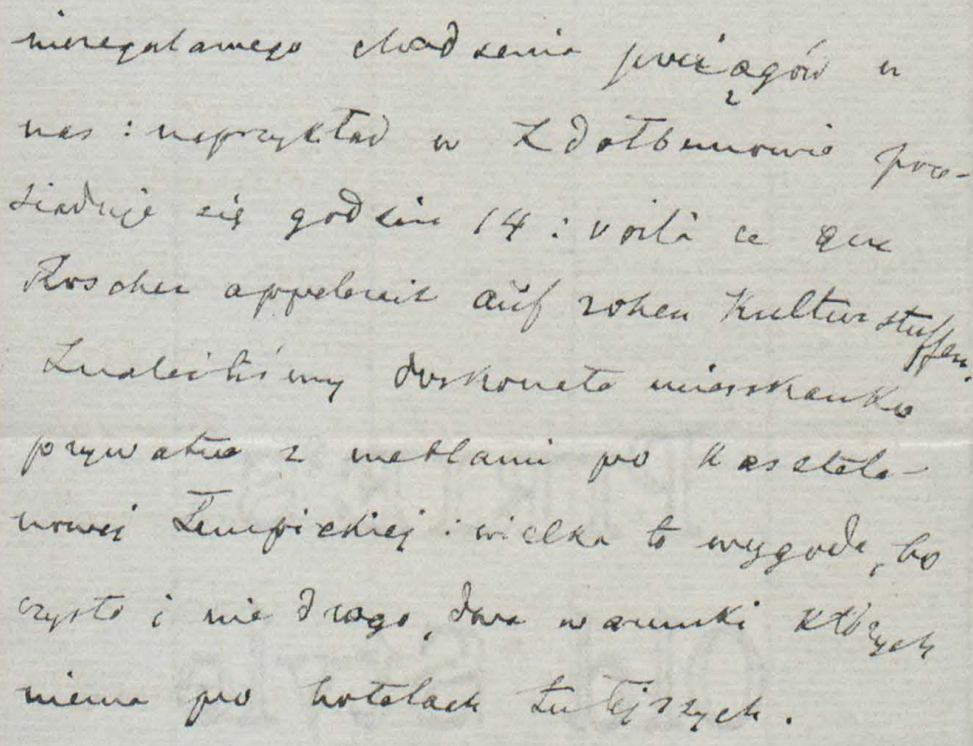 nieregularnego chodzenia pociągów u
nas: naprzykład w Zdołbunowie prze-
siaduje się godzin 14: voilà ce que
Roscher appelerait auf rohen Kulturstuffen.
Znaleźliśmy doskonałe mieszkanko
prywatne z meblami po kasztela-
nowej Łempickiej: wielka to wygoda, bo
czysto i nie drogo, dwa warunki których
niema po hotelach tutejszych.